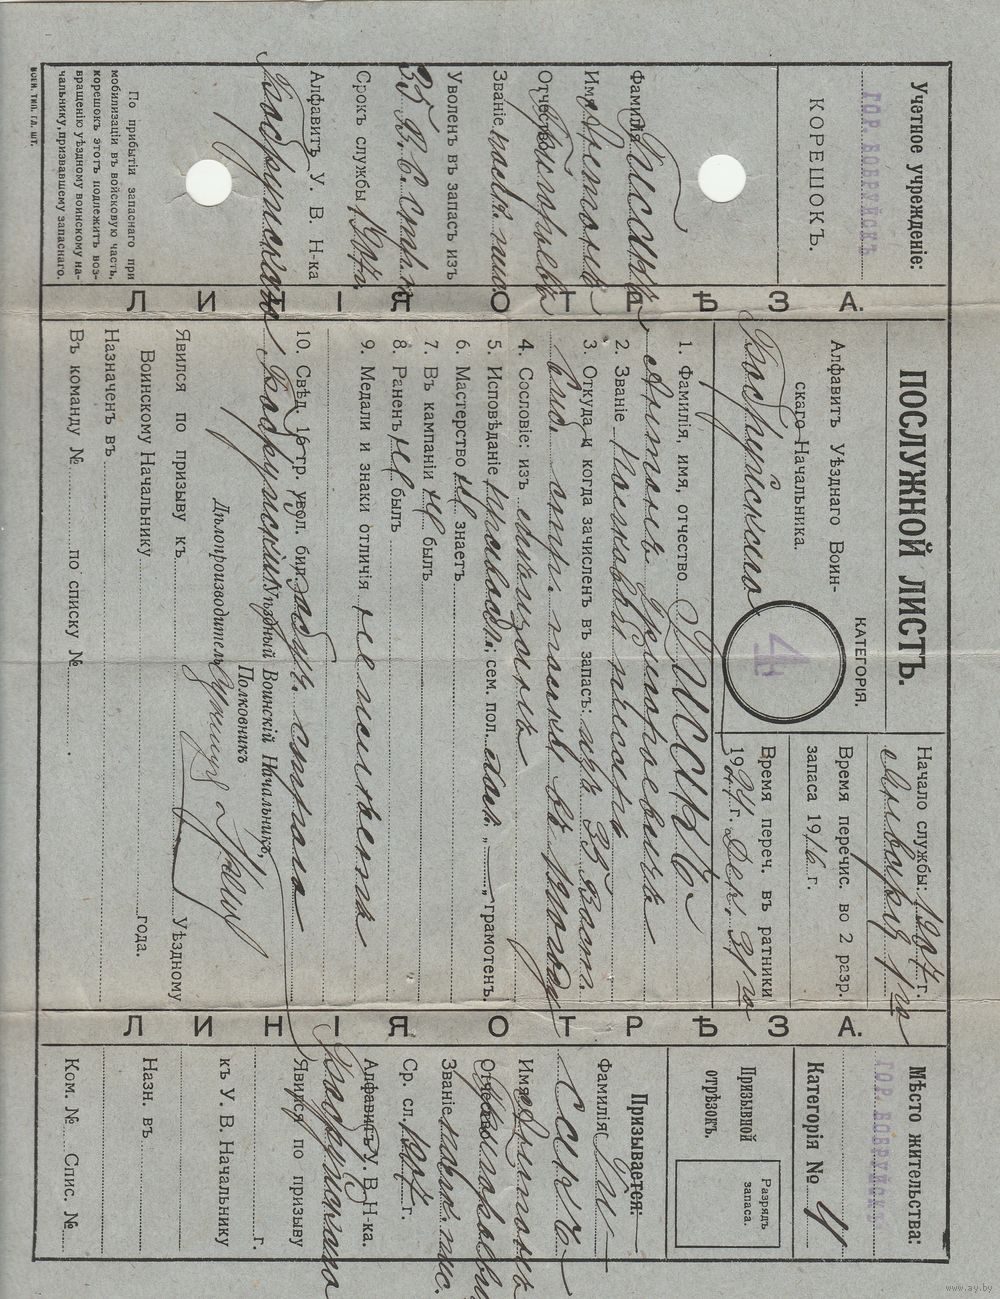 Учетное учрежденіе:
ГОР. БОБРУЙСКЪ
КОРЕШОКЪ.
Фамилія Писликъ
Имя Антонъ
Отчество Григорьевъ
Званіе
Уволенъ въ запасъ изъ
35 В. С. стр. п.
Срокъ службы 1907 г.
Алфавитъ У. В. Н-ка
Бобруйскаго
По прибытіи запаснаго при
мобилизаціи въ войсковую часть,
корешокъ этотъ подлежитъ воз-
вращенію уѣздному воинскому на-
чальнику, призвавшему запаснаго.
ВОЕН. ТИП. ГЛ. ШТ.
ЛИНІЯ ОТРѢЗА.
ПОСЛУЖНОЙ ЛИСТЪ.
Алфавитъ Уѣзднаго Воин-
скаго Начальника.
Бобруйскаго
КАТЕГОРІЯ.
4
Начало службы: 1907 г.
Января 1го
Время перечис. во 2 разр.
запаса 1916 г.
Время переч. въ ратники
1924 г. Дек. 31го
1. Фамилія, имя, отчество
Антонъ Григорьевичъ
2. Званіе
3. Откуда и когда зачисленъ въ запасъ: изъ 35 Вост.
Сиб. стр. полка въ
4. Сословіе: изъ
5. Исповѣданіе православн.; сем. пол. „ “ грамотенъ.
6. Мастерство не знаетъ
7. Въ кампаніи не былъ
8. Раненъ не былъ
9. Медали и знаки отличія не имѣетъ
10. Свѣд. 15 гр. увол. бил.
Бобруйскій Уѣздный Воинскій Начальникъ,
Полковникъ
Дѣлопроизводитель
Явился по призыву къ Уѣздному
Воинскому Начальнику года.
Назначенъ въ
Въ команду № по списку № .
ЛИНІЯ ОТРѢЗА.
Мѣсто жительства:
ГОР. БОБРУЙСКЪ
Категорія № 4
Призывной
отрѣзокъ.
Разрядъ
запаса.
Призывается:
Фамилія
Имя Антонъ
Отчество Григорьевъ
Званіе
Ср. сл. 1907 г.
Алфавитъ У. В. Н-ка.
Бобруйскаго
Явился по призыву
г.
къ У. В. Начальнику
Назн. въ
Ком. № Спис. №
www.ay.by